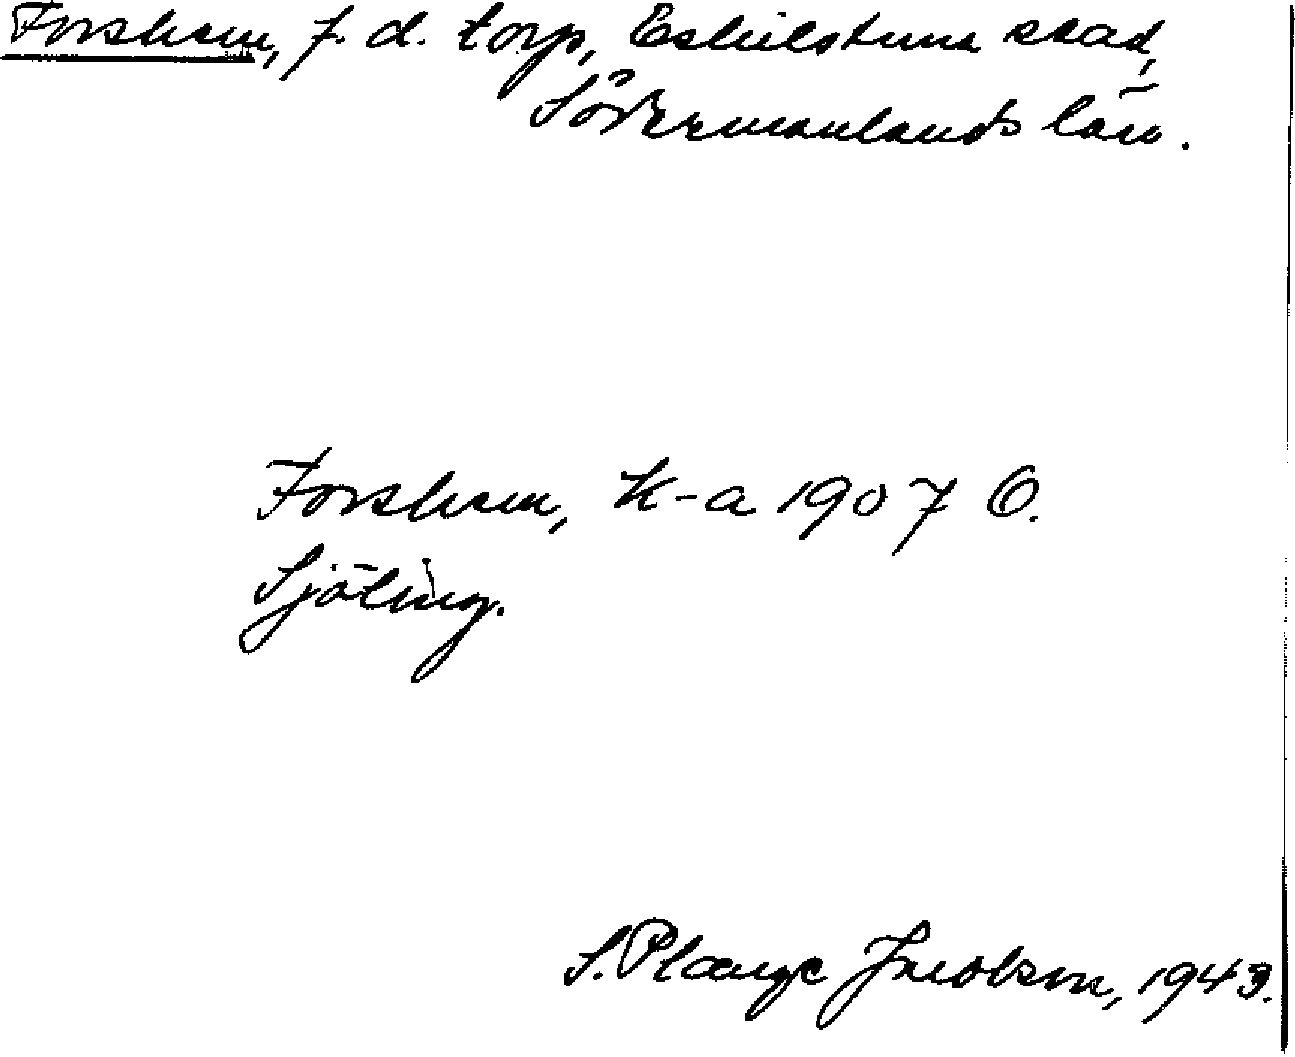 Forshem, f. d. torp, Eskilstuna stad,
Södermanlands län.
Forshem, K-a 1907 O.
Sjöling.
S. Plænge Jacobson, 1943.